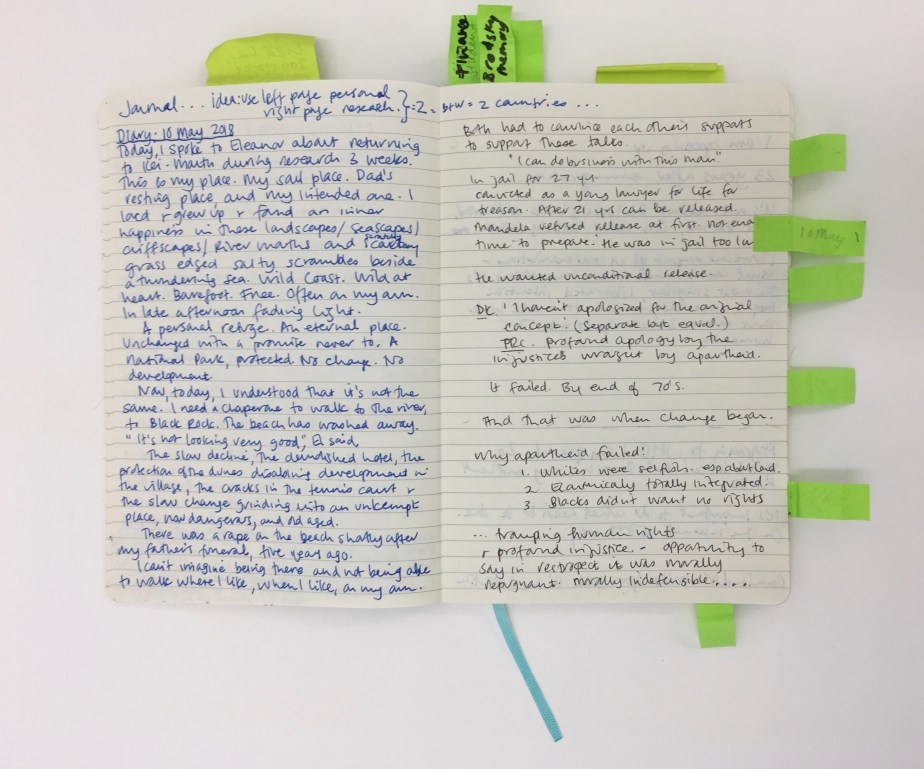 Brodsky
memory
Journal... idea: use left page personal
right page research. } = 2. btw = 2 countries ...
Diary. 10 May 2018
Today, I spoke to Eleanor about returning
to Kei-Mouth during research 3 weeks.
This is my place. My sad place. Dad's
resting place, and my intended one. I
lived & grew up & found an inner
happiness in these landscapes/seascapes/
cliffscapes/River mouths and
grass edged salty scrambles beside
a thundering sea. Wild Coast. Wild at
heart. Barefoot. Free. Often on my own.
In late afternoon fading light.
A personal refuge. An eternal place.
Unchanged with a promise never to. A
National Park, protected. No change. No
development
Now, today, I understood that it's not the
same. I need a chaperone to walk to the river,
to Black Rock. The beach has washed away.
"It's not looking very good", El said.
The slow decline, the demolished hotel, the
protection of the dunes disabling development in
the village, the cracks in the tennis court &
the slow change grinding into an unkempt
place, now dangerous, and old aged.
There was a rape on the beach shortly after
my father's funeral, five years ago.
I can't imagine being there and not being able
to walk where I like, when I like, on my own.
Both had to convince each other's supports
to support these talks.
"I can do business with this man"
In jail for 27 yrs.
convicted as a young lawyer for life for
treason. After 21 yrs can be released.
Mandela refused release at first. not enou
time to prepare. He was in jail too lon
He wanted unconditional release.
DK. "I haven't apologized for the original
concept. (Separate but equal.)
TRC. Profound apology by the
injustices wrought by apartheid.
It failed. By end of 70's.
And that was when change began.
Why apartheid failed:
1. Whites were selfish. esp about land.
2. Economically totally integrated.
3. Blacks didn't want no rights
... tramping human rights
& profound injustice. - opportunity to
say in retrospect it was morally
repugnant. morally indefensible....
10 May